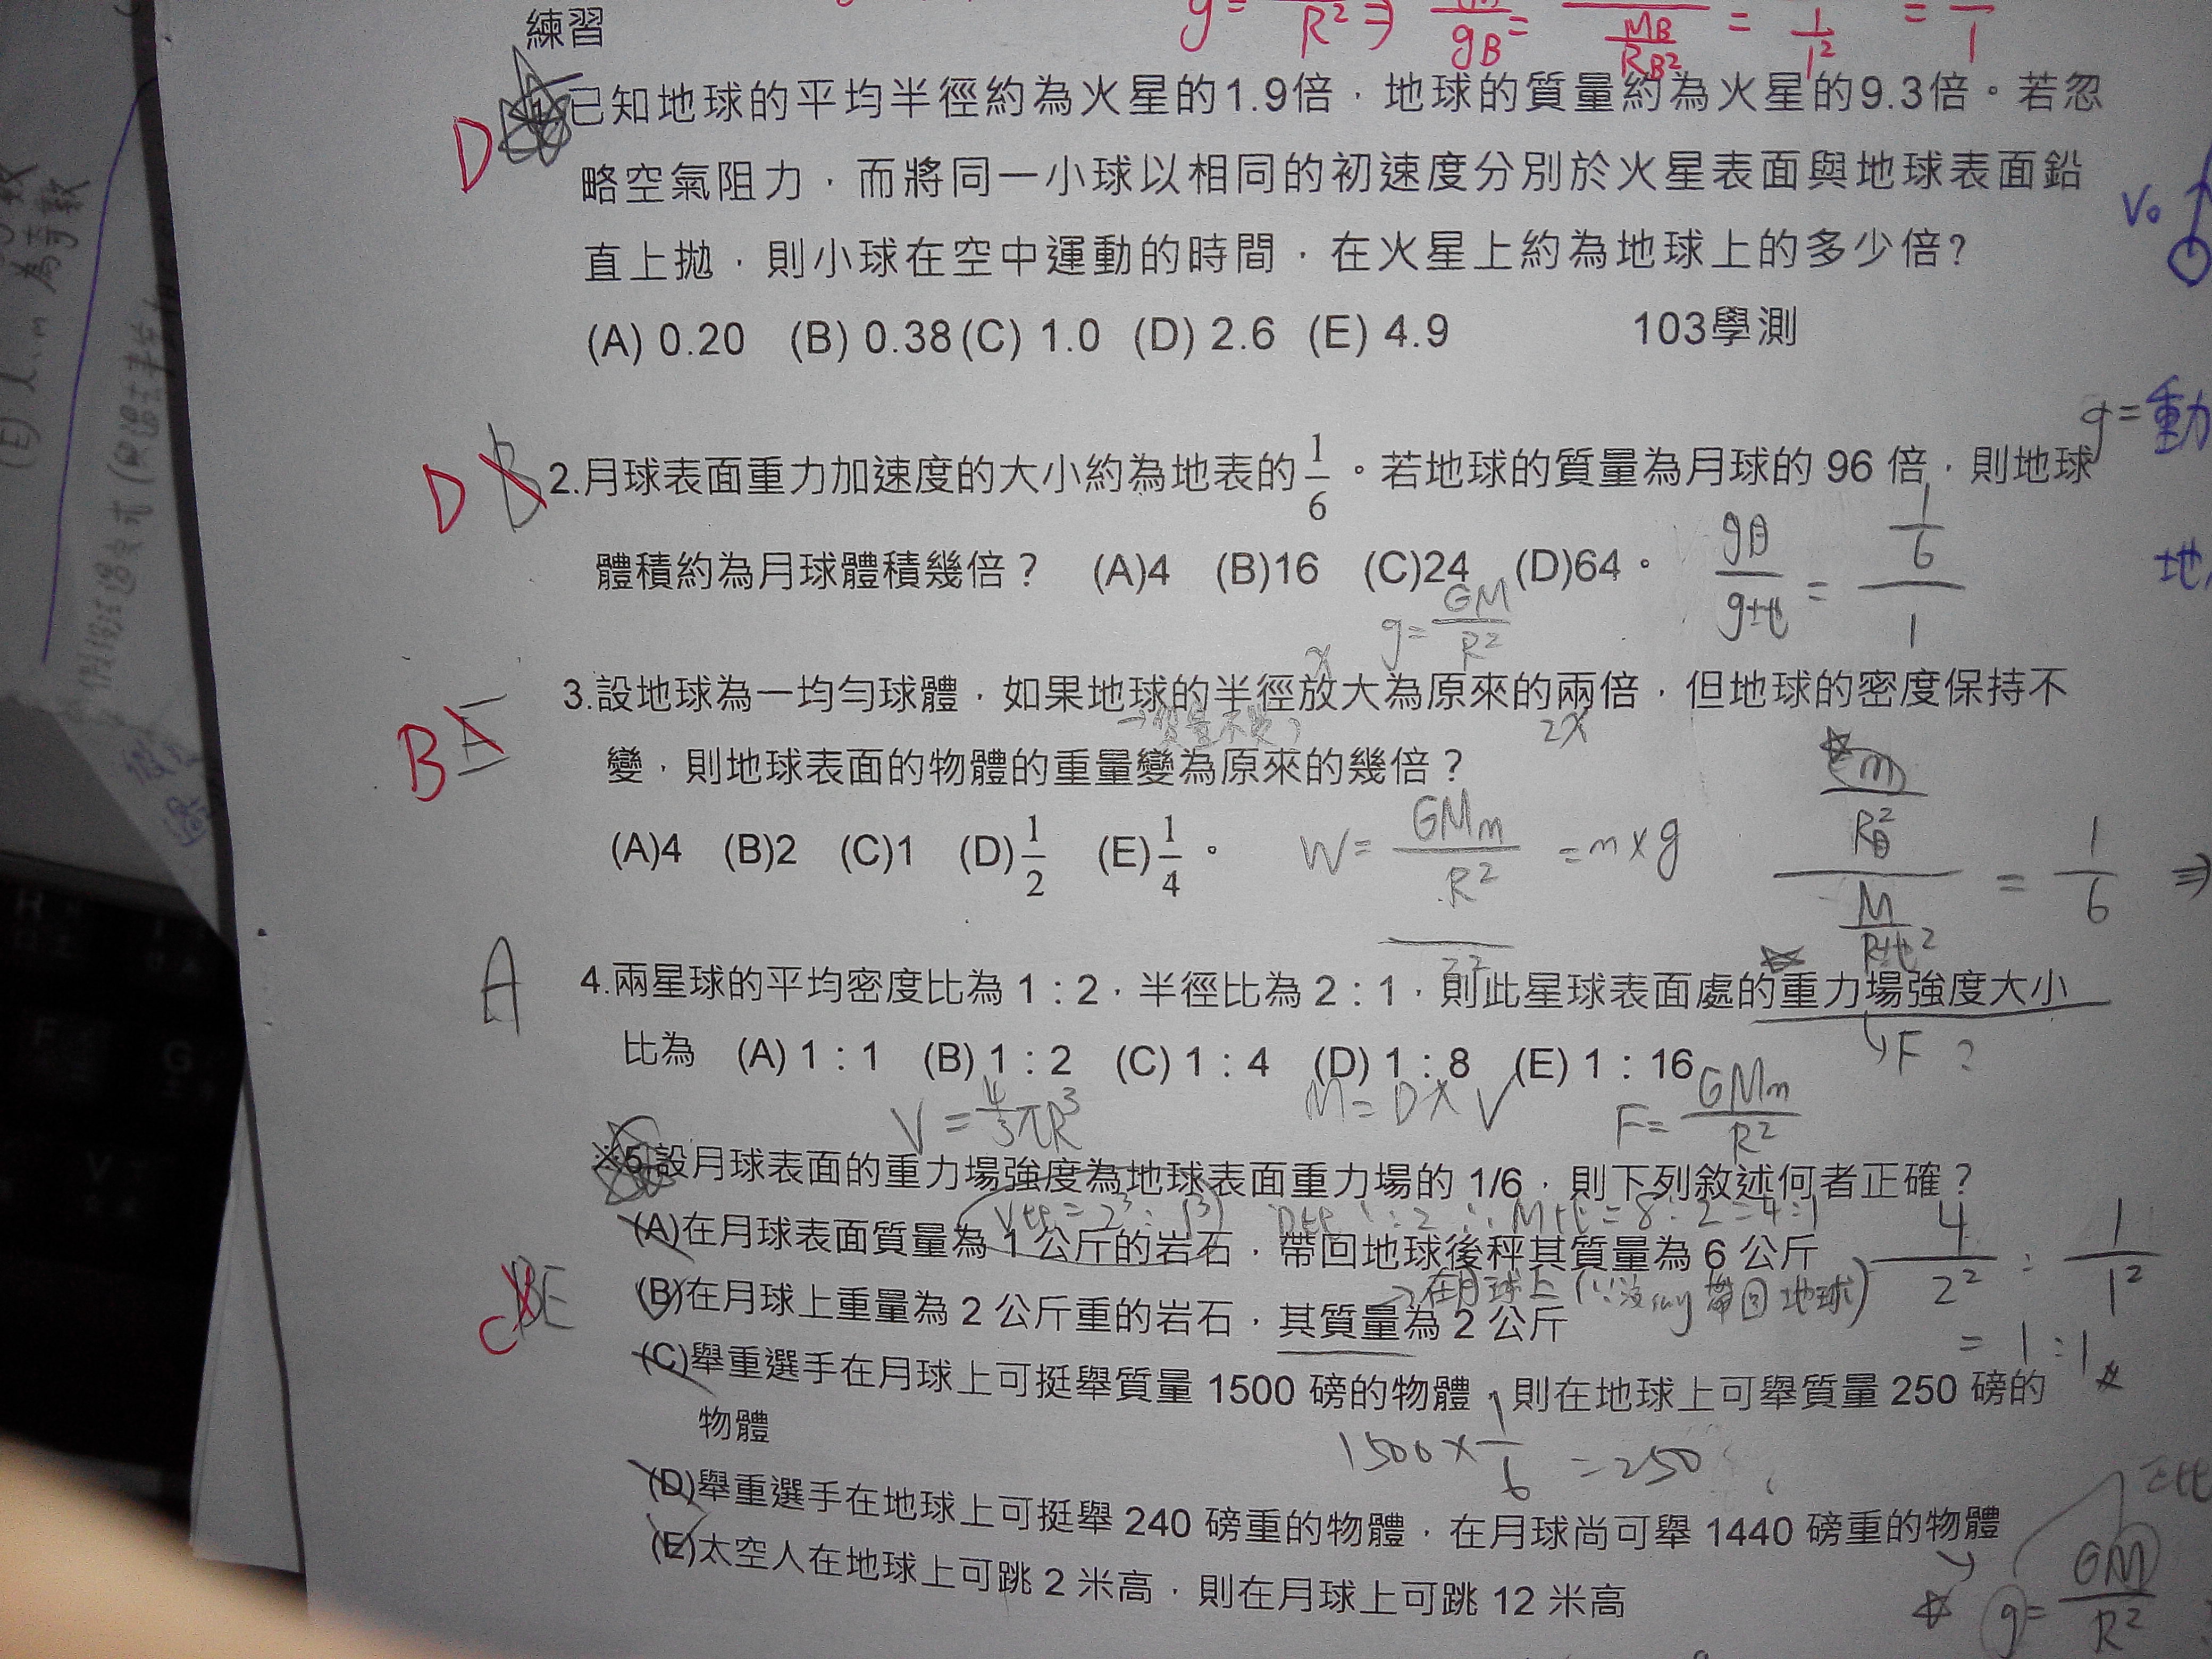 練習
g= R² ⇒ gB = MB RB² = 1 1² = 1
D 1.已知地球的平均半徑約為火星的1.9倍，地球的質量約為火星的9.3倍。若忽
略空氣阻力，而將同一小球以相同的初速度分別於火星表面與地球表面鉛
直上拋，則小球在空中運動的時間，在火星上約為地球上的多少倍?
V₀
(A) 0.20 (B) 0.38 (C) 1.0 (D) 2.6 (E) 4.9 103學測
g=動
D B 2.月球表面重力加速度的大小約為地表的 1/6 。若地球的質量為月球的 96 倍，則地球
體積約為月球體積幾倍？ (A)4 (B)16 (C)24 (D)64。
g月/g地 = 1/6 / 1
地
g= GM/R²
x
B E 3.設地球為一均勻球體，如果地球的半徑放大為原來的兩倍，但地球的密度保持不
→質量不變? 2x
變，則地球表面的物體的重量變為原來的幾倍？
(A)4 (B)2 (C)1 (D) 1/2 (E) 1/4 。
W= GMm/R² = m x g
m/R月² / M/R地² = 1/6 ⇒
A 4.兩星球的平均密度比為 1：2，半徑比為 2：1，則此星球表面處的重力場強度大小
比為 (A) 1：1 (B) 1：2 (C) 1：4 (D) 1：8 (E) 1：16
F ?
V = 4/3 πR³ M = D x V F= GMm/R²
※5.設月球表面的重力場強度為地球表面重力場的 1/6，則下列敘述何者正確？
V比 = 2³ : 1³ D比 1:2 ∴ M比 = 8:2 = 4:1
(A)在月球表面質量為 1 公斤的岩石，帶回地球後秤其質量為 6 公斤
4/2² : 1/1²
→在月球上 (∵沒say 帶回地球)
C BE (B)在月球上重量為 2 公斤重的岩石，其質量為 2 公斤
= 1 : 1
(C)舉重選手在月球上可挺舉質量 1500 磅的物體，則在地球上可舉質量 250 磅的
物體
1500 x 1/6 = 250
正比
(D)舉重選手在地球上可挺舉 240 磅重的物體，在月球尚可舉 1440 磅重的物體
(E)太空人在地球上可跳 2 米高，則在月球上可跳 12 米高
g= GM/R²